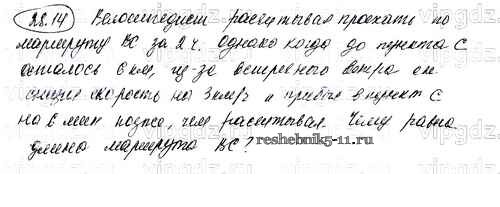 28.14 Велосипедист рассчитывал проехать по
маршруту ВС за 2 ч. однако когда до пункта С
осталось 6 км, из-за встречного ветра он
снизил скорость на 3 км/ч и прибыл в пункт С
на 6 мин позже, чем рассчитывал. Чему равна
длина маршрута ВС?
reshebnik5-11.ru
vipgdz.com